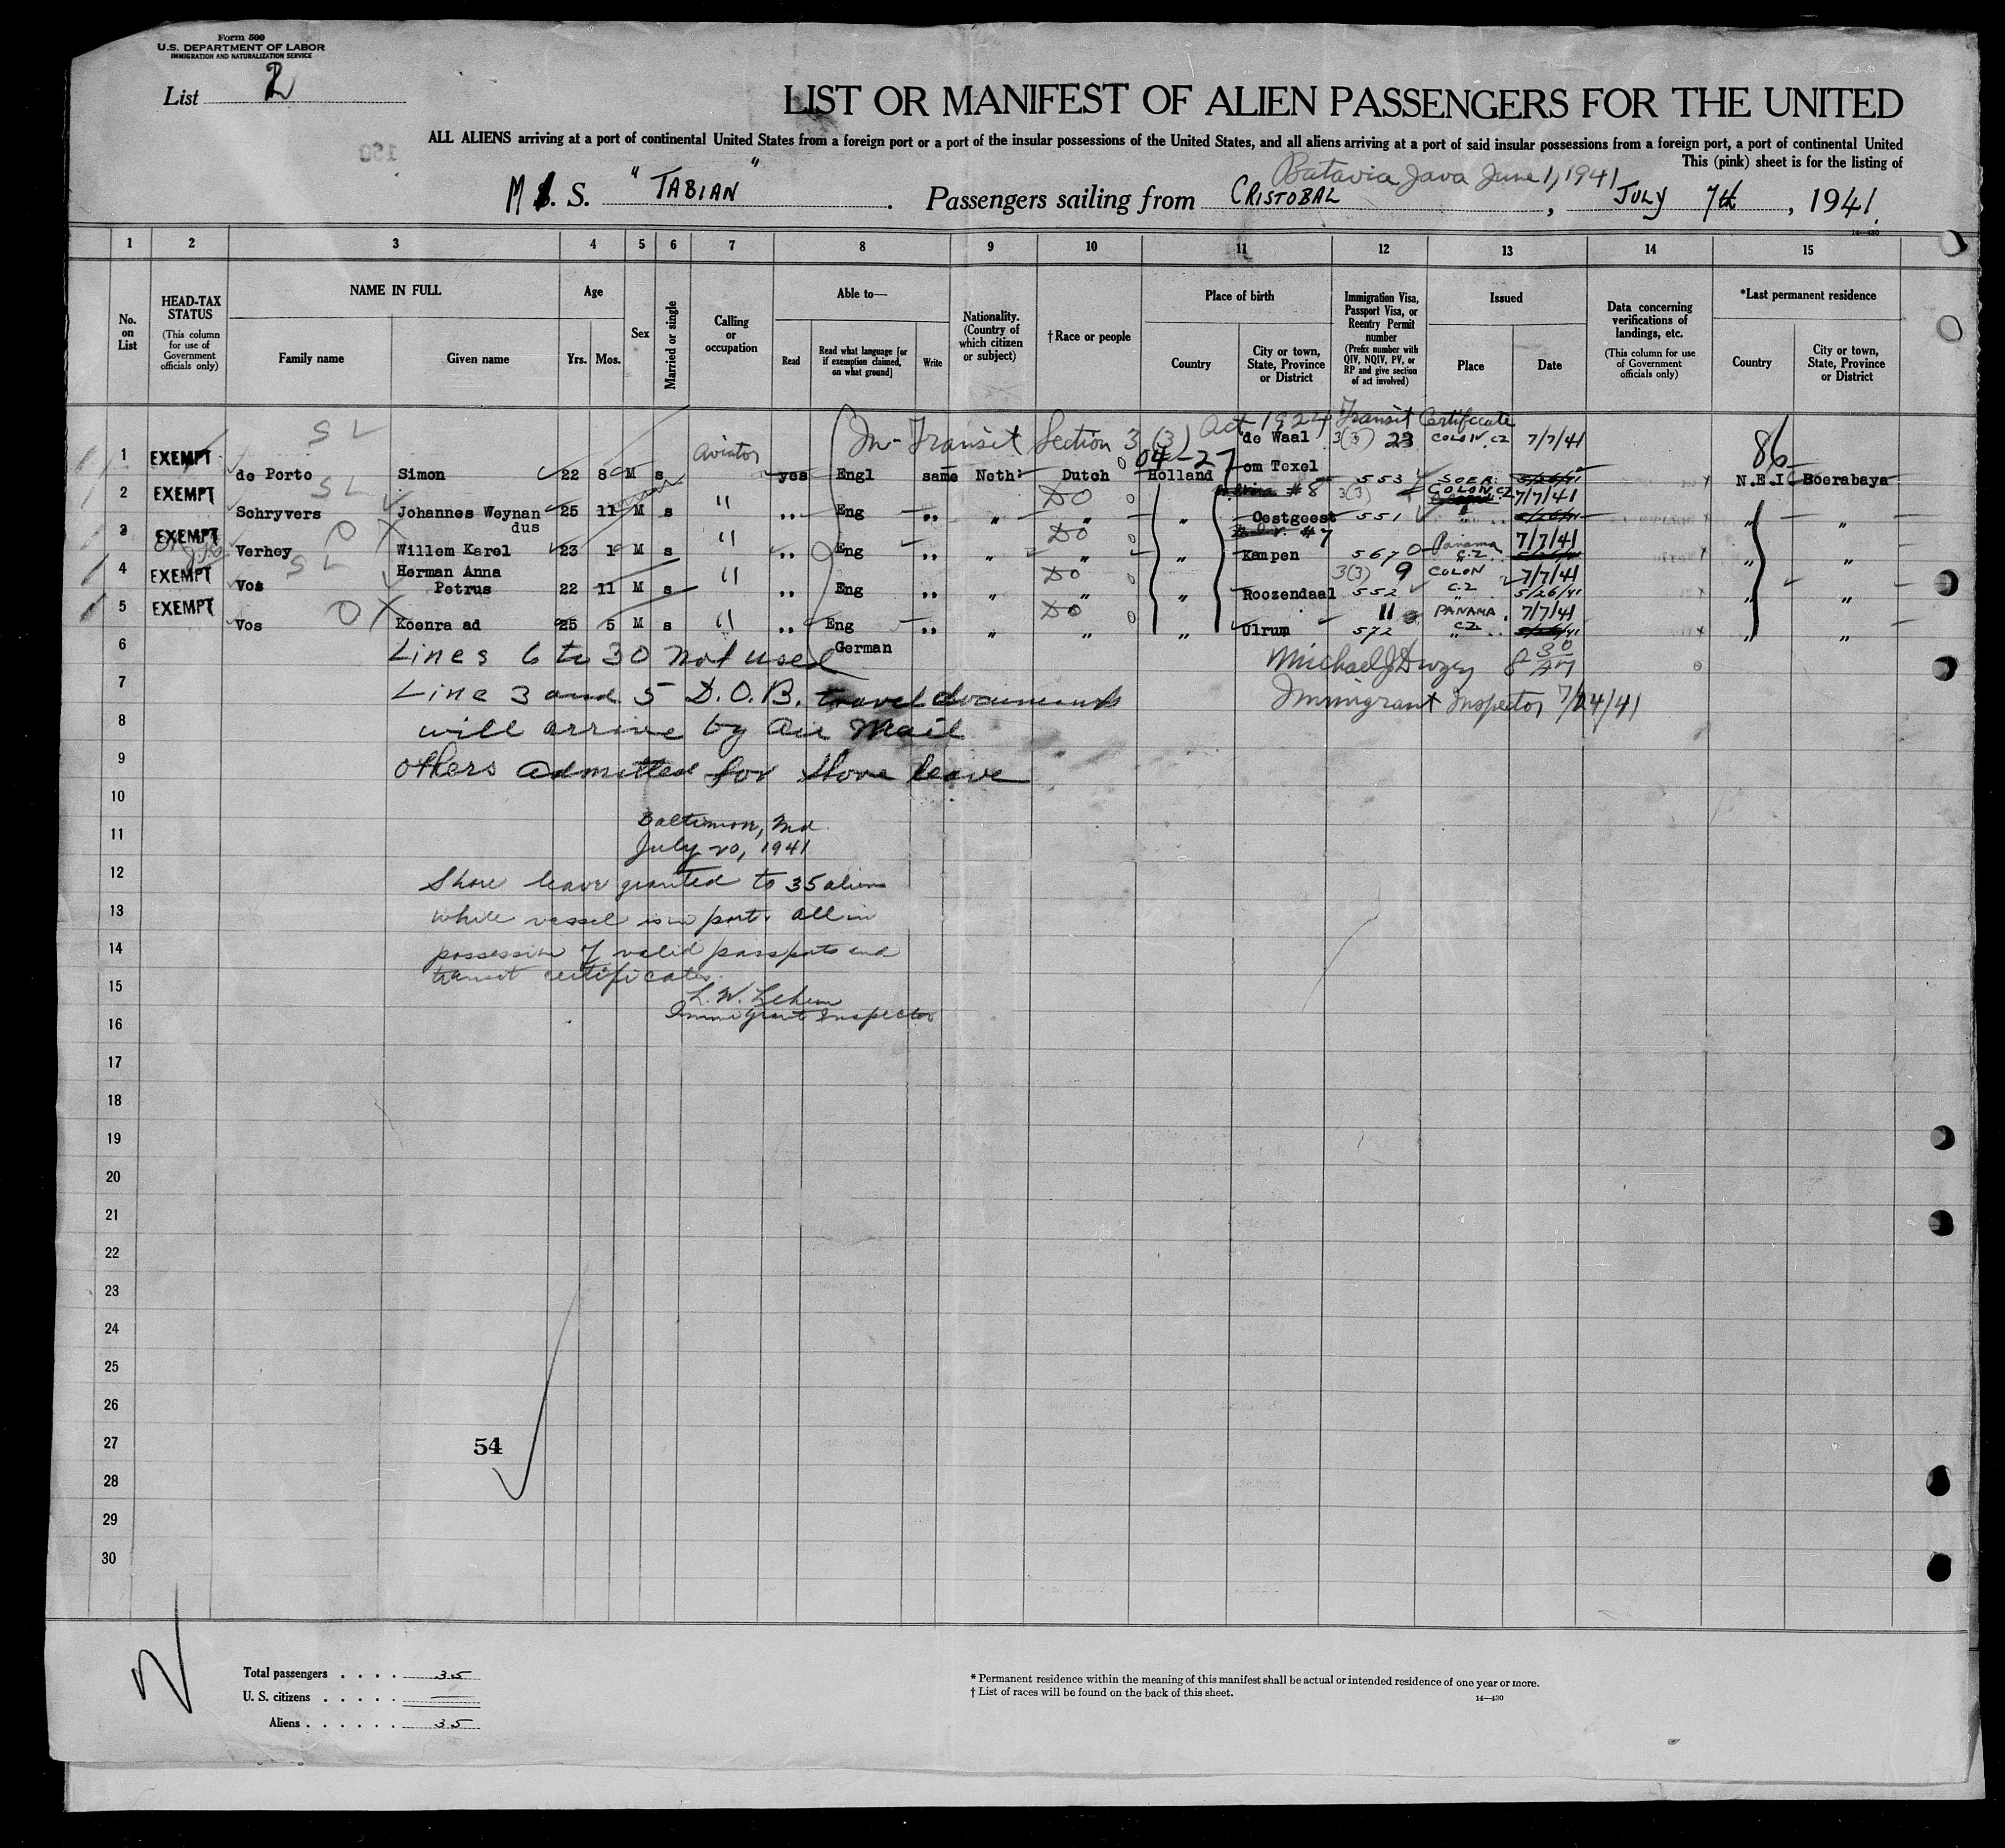 Form 500
U.S. DEPARTMENT OF LABOR
IMMIGRATION AND NATURALIZATION SERVICE
List 2
LIST OR MANIFEST OF ALIEN PASSENGERS FOR THE UNITED
ALL ALIENS arriving at a port of continental United States from a foreign port or a port of the insular possessions of the United States, and all aliens arriving at a port of said insular possessions from a foreign port, a port of continental United
This (pink) sheet is for the listing of
Batavia Java June 1, 1941
M. S. "TABIAN". Passengers sailing from CRISTOBAL, JULY 7th, 1941.
14—430
1 2 3 4 5 6 7 8 9 10 11 12 13 14 15
No. on List
HEAD-TAX STATUS (This column for use of Government officials only)
NAME IN FULL
Family name Given name
Age
Yrs. Mos.
Sex
Married or single
Calling or occupation
Able to—
Read Read what language [or if exemption claimed, on what ground] Write
Nationality. (Country of which citizen or subject)
† Race or people
Place of birth
Country City or town, State, Province or District
Immigration Visa, Passport Visa, or Reentry Permit number (Prefix number with QIV, NQIV, PV, or RP and give section of act involved)
Issued
Place Date
Data concerning verifications of landings, etc. (This column for use of Government officials only)
*Last permanent residence
Country City or town, State, Province or District
In-Transit Section 3 (3) Act 1924 Transit Certificate
1 EXEMPT S L de Porto Simon 22 8 M s Aviator yes Engl same Neth: Dutch 04-27 Holland de Waal om Texel 3(3) 23 553 COLON, CZ SOER. 7/7/41 5/26/41 86 N.E.I Soerabaya
2 EXEMPT S L Schryvers Johannes Weynandus 25 11 M s " ,, Eng ,, " DO " " #8 Oestgeest 3(3) 551 COLON, CZ 7/7/41 5/26/41 " "
3 EXEMPT O X Verhey Willem Karel 23 1 M s " ,, Eng ,, " DO " " #7 Kampen 5670 Panama C.Z. 7/7/41 5/26/41 " "
4 EXEMPT S L Vos Herman Anna Petrus 22 11 M s " ,, Eng ,, " DO " " Roozendaal 3(3) 9 552 COLON C.Z 7/7/41 5/26/41 " "
5 EXEMPT O X Vos Koenra ad 25 5 M s " ,, Eng German ,, " DO " " Ulrum 11 572 PANAMA. CZ 7/7/41 5/26/41 " "
6 Lines 6 to 30 not used
7 Line 3 and 5 D.O.B. travel documents
Immigrant Inspector 7/24/41
8 will arrive by air Mail
9 others admitted for shore leave
10
11 Baltimore, Md
July 20, 1941
12 Shore leave granted to 35 aliens
13 while vessel is in port. All in
14 possession of valid passports and
15 transit certificates.
L. W.
16 Immigrant Inspector
17
18
19
20
21
22
23
24
25
26
27 54
28
29
30
Total passengers . . . . 35
U. S. citizens . . . . . —
Aliens . . . . . . 35
* Permanent residence within the meaning of this manifest shall be actual or intended residence of one year or more.
† List of races will be found on the back of this sheet.
14—430